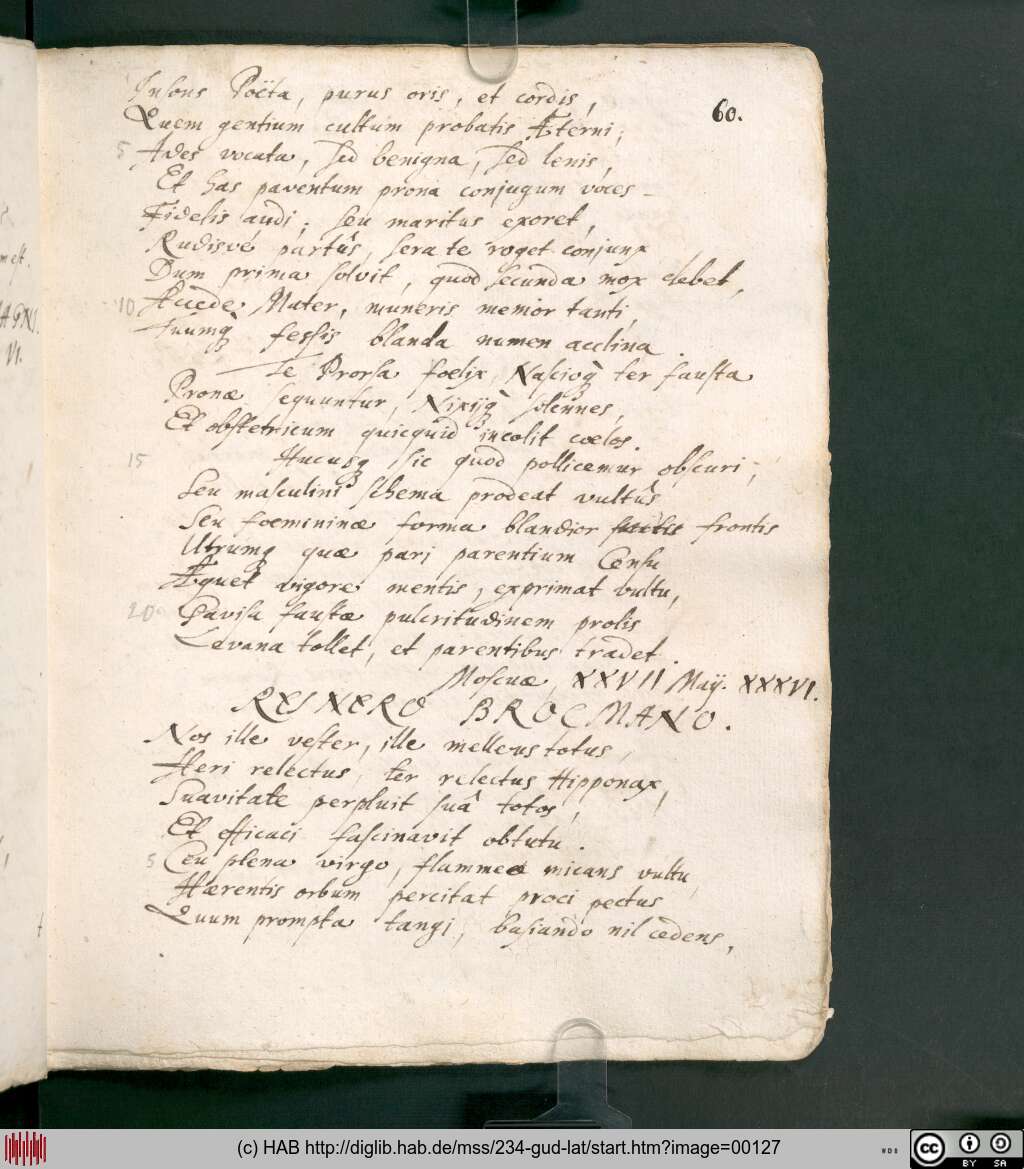 Insons Poëta, purus oris, et cordis,
60.
Quem gentium cultum probatis Æterni;
5 Ades vocata, sed benigna, sed lenis,
Et has paventum prona conjugum voces
Fidelis audi; seu maritus exoret,
Rudisve partûs, sera te roget conjunx
Dum prima solvit, quod secunda mox debet,
10 Accede Mater, muneris memor tanti,
Tuumq fessis blanda numen acclina.
Te Prorsa foelix, Nascioq ter fausta
Pronæ sequuntur, Nixijq solennes,
Et obstetricum quicquid incolit coelos.
15 Hucusq sic quod pollicemur obscuri;
Seu masculini schema prodeat vultûs
Seu foemininæ forma blandior frontis
Utrumq quæ pari parentium Censu
Æquet vigore mentis, exprimat vultu,
20 Gavisa faustæ pulcritudinem prolis
Levana tollet, et parentibus tradet.
Moscuæ, XXVII Maij. XXXVI.
REINERO BROCMANO.
Nos ille vester, ille melleus totus,
Heri relectus, ter relectus Hipponax,
Suavitate perpluit suâ totos,
Et efficaci fascinavit obtutu.
5 Ceu plena virgo, flammea micans vultu,
Hærentis orbum percitat proci pectus
Quum prompta tangi, basiando nil cedens,
(c) HAB http://diglib.hab.de/mss/234-gud-lat/start.htm?image=00127
cc BY SA